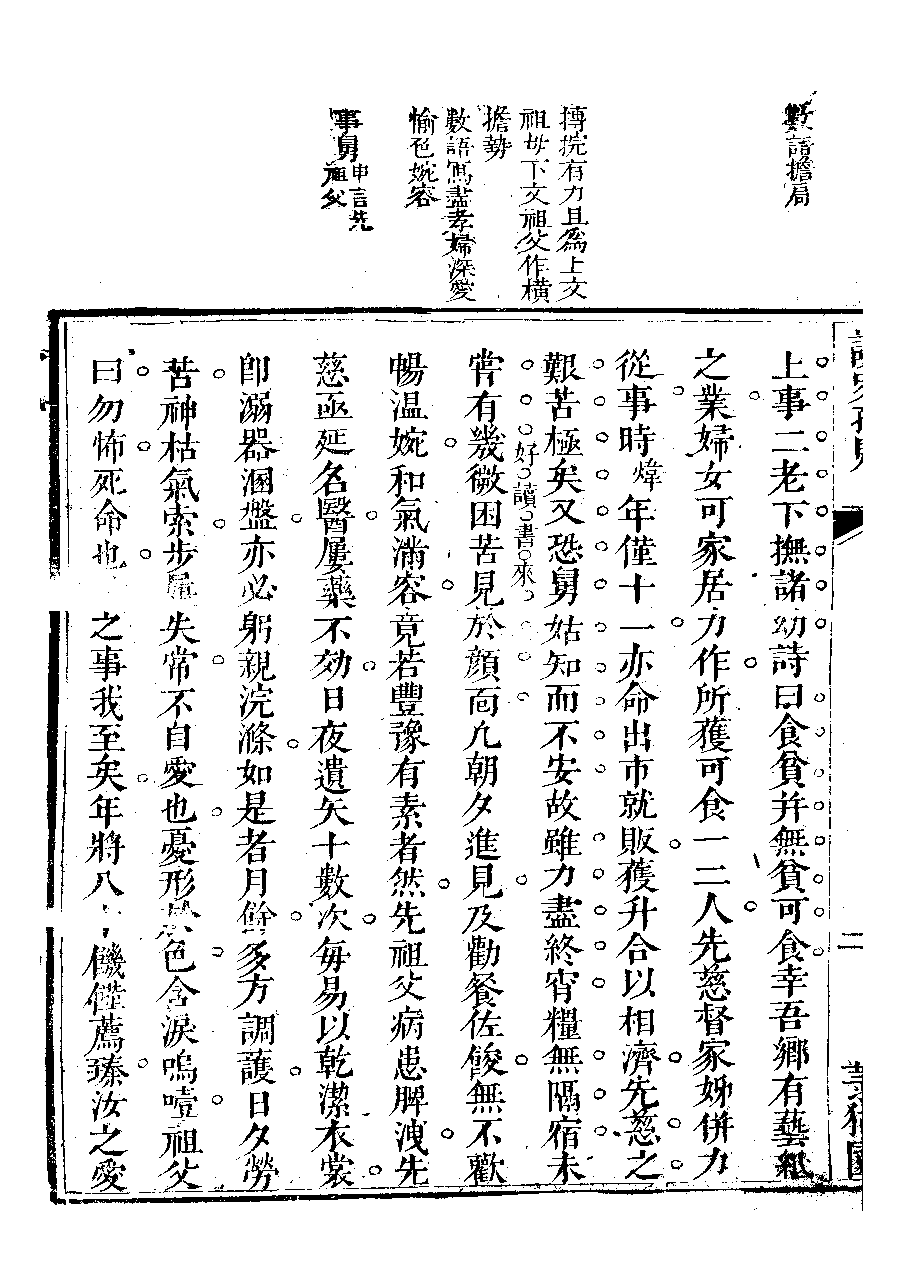 數語擔局
摶捖有力且爲上文
祖母下文祖父作橫
擔勢
數語寫盡孝婦深愛
愉色婉容
事舅申言先祖父
二
上事二老下撫諸幼詩曰食貧并無貧可食幸吾鄉有藝紙
之業婦女可家居力作所獲可食一二人先慈督家姊併力
從事時煒年僅十一亦命出市就販獲升合以相濟先慈之
艱苦極矣又恐舅姑知而不安故雖力盡終宵糧無隔宿未
好讀書來
嘗有幾微困苦見於顏面凢朝夕進見及勸餐佐餕無不歡
暢温婉和氣滿容竟若豐豫有素者然先祖父病患脾洩先
慈亟延名醫屢藥不効日夜遺矢十數次每易以乾潔衣裳
卽溺器溷盤亦必躬親浣滌如是者月餘多方調護日夕勞
苦神枯氣索步屧失常不自愛也憂形於色含淚嗚噎祖父
曰勿怖死命也之事我至矣年將八十饑饉薦臻汝之愛